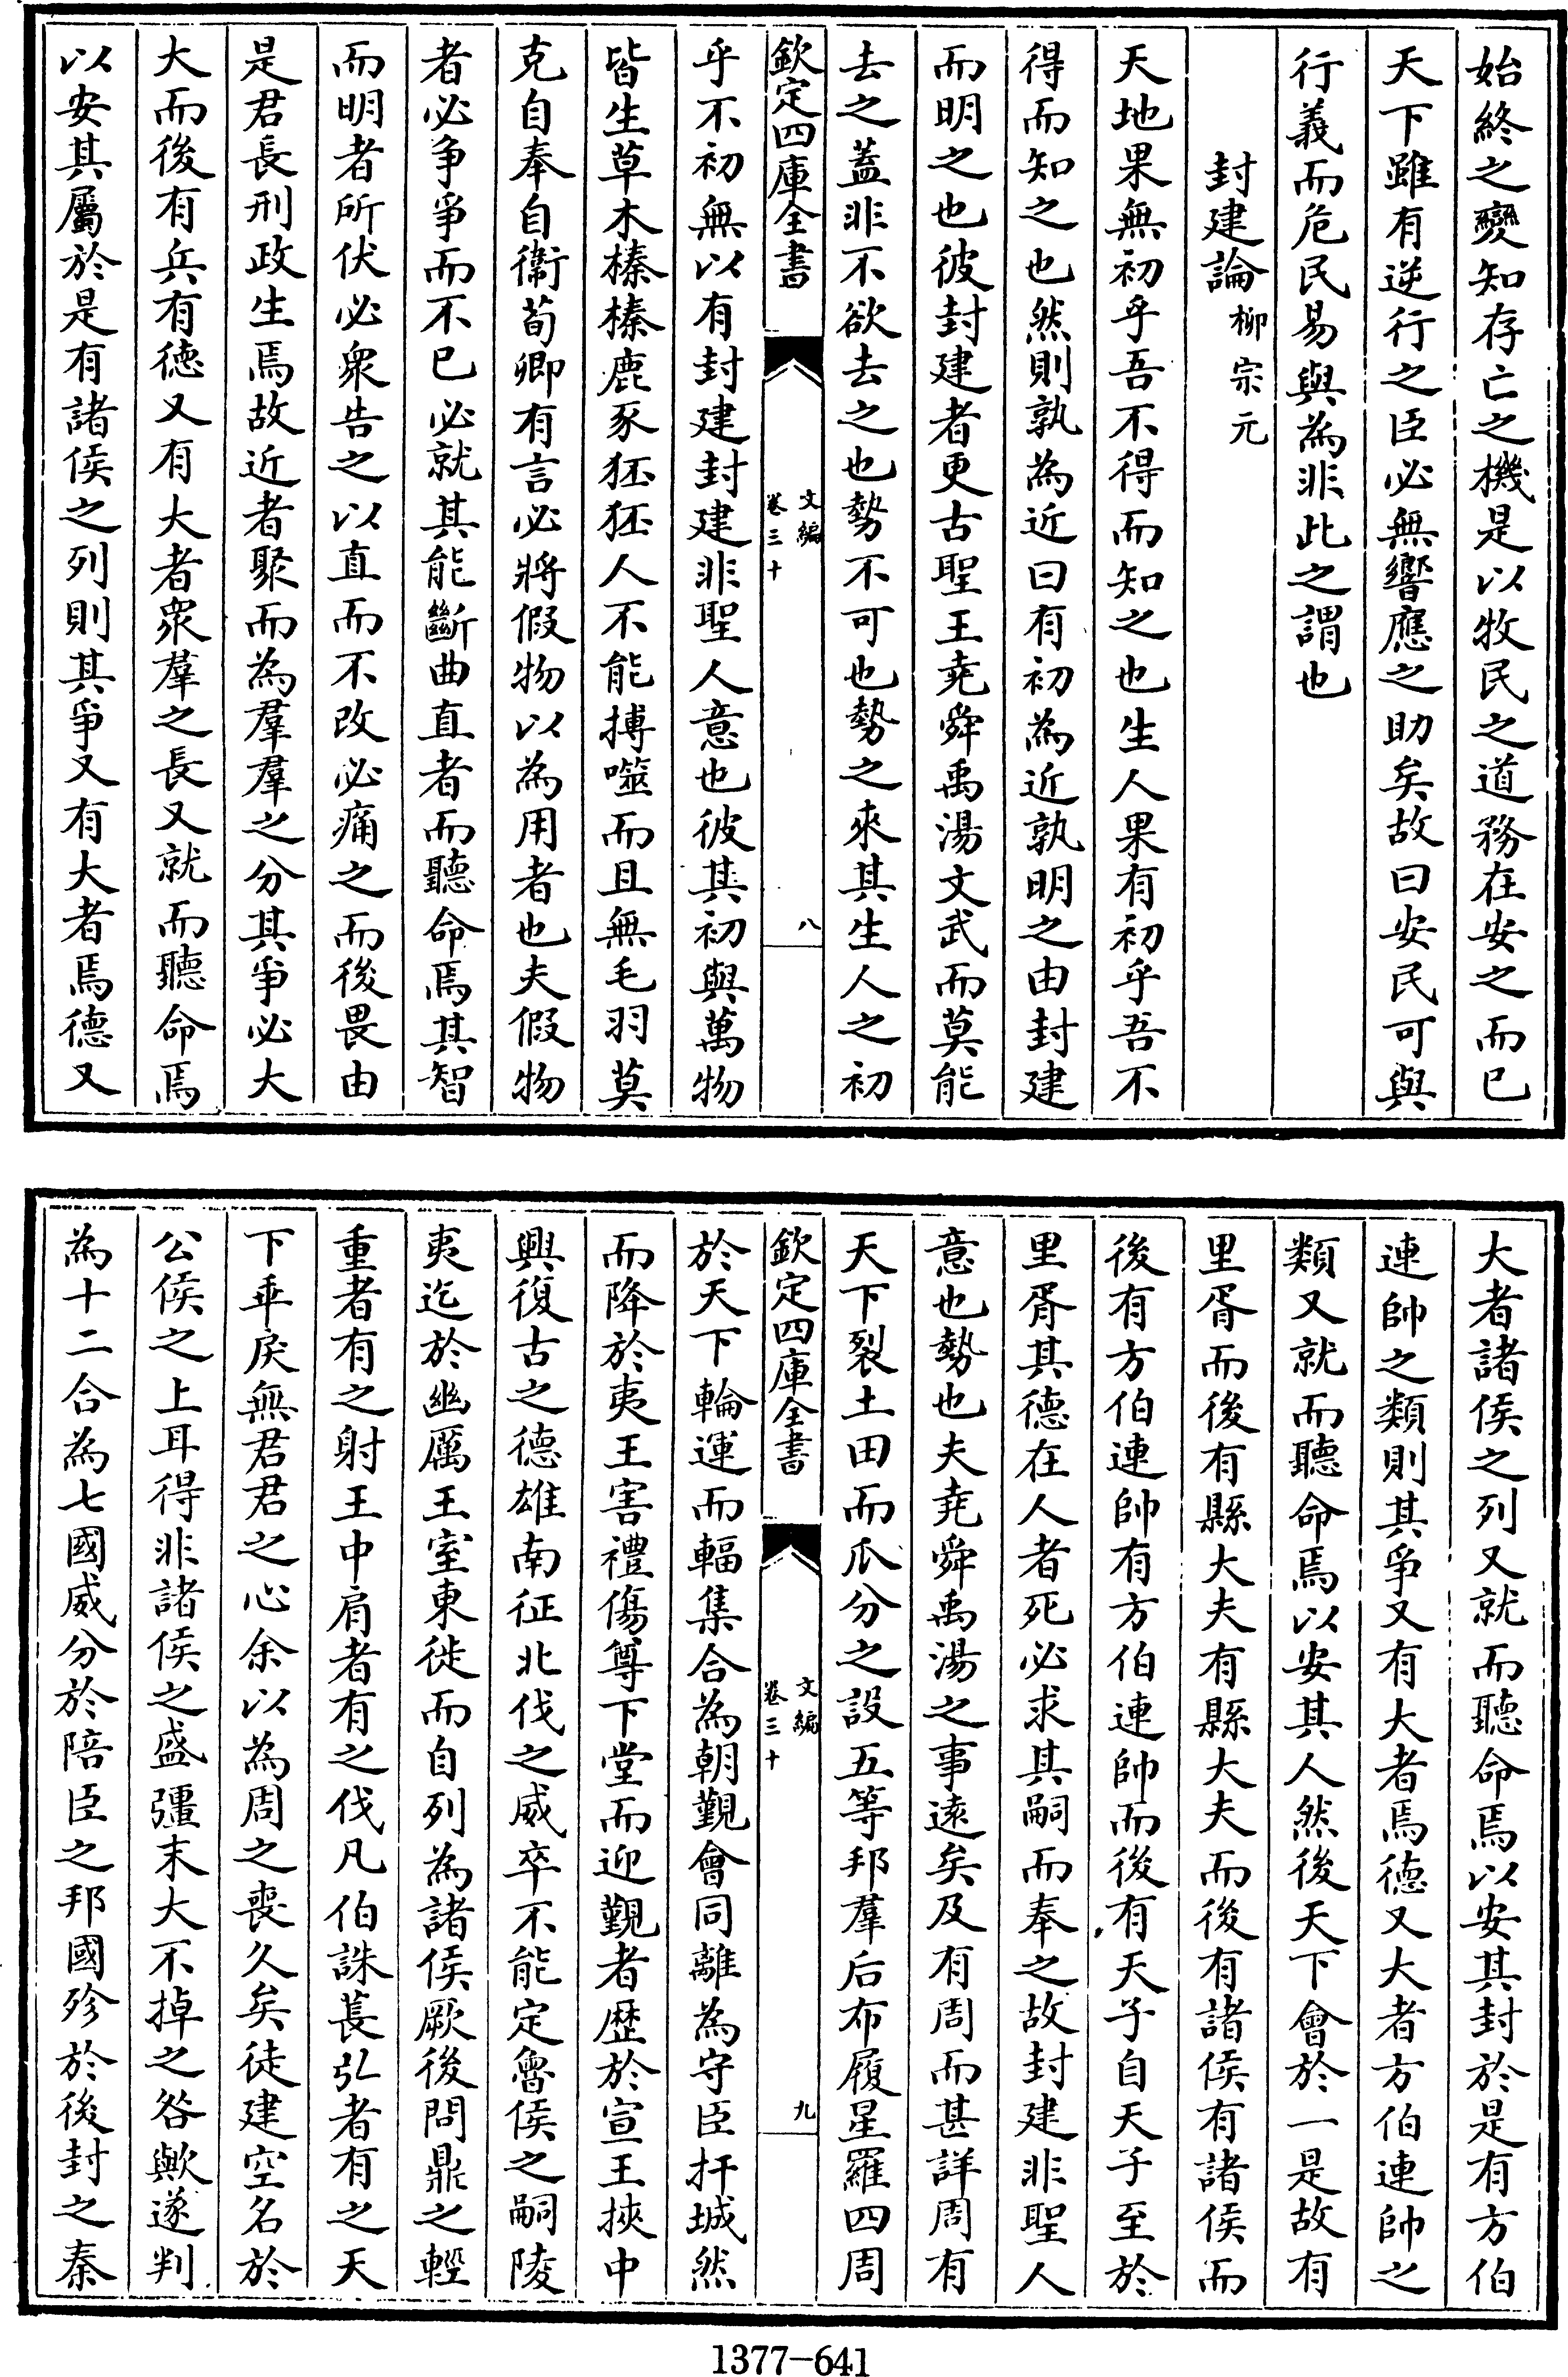 始終之變知存亡之機是以牧民之道務在安之而已
天下雖有逆行之臣必無響應之助矣故曰安民可與
行義而危民易與為非此之謂也
封建論柳宗元
天地果無初乎吾不得而知之也生人果有初乎吾不
得而知之也然則孰為近曰有初為近孰明之由封建
而明之也彼封建者更古聖王堯舜禹湯文武而莫能
去之蓋非不欲去之也勢不可也勢之來其生人之初
欽定四庫全書
文編
卷三十
八
乎不初無以有封建封建非聖人意也彼其初與萬物
皆生草木榛榛鹿豕狉狉人不能搏噬而且無毛羽莫
克自奉自衞荀卿有言必將假物以為用者也夫假物
者必争爭而不已必就其能斷曲直者而聽命焉其智
而明者所伏必衆告之以直而不改必痛之而後畏由
是君長刑政生焉故近者聚而為羣羣之分其爭必大
大而後有兵有德又有大者衆羣之長又就而聽命焉
以安其屬於是有諸侯之列則其爭又有大者焉德又
大者諸侯之列又就而聽命焉以安其封於是有方伯
連帥之類則其爭又有大者焉德又大者方伯連帥之
類又就而聽命焉以安其人然後天下會於一是故有
里胥而後有縣大夫有縣大夫而後有諸侯有諸侯而
後有方伯連帥有方伯連帥而後有天子自天子至於
里胥其德在人者死必求其嗣而奉之故封建非聖人
意也勢也夫堯舜禹湯之事遠矣及有周而甚詳周有
天下裂土田而瓜分之設五等邦羣后布履星羅四周
欽定四庫全書
文編
卷三十
九
於天下輪運而輻集合為朝覲會同離為守臣扞城然
而降於夷王害禮傷尊下堂而迎覲者歴於宣王挾中
興復古之德雄南征北伐之威卒不能定魯侯之嗣陵
夷迄於幽厲王室東徙而自列為諸侯厥後問鼎之輕
重者有之射王中肩者有之伐凡伯誅萇弘者有之天
下乖戾無君君之心余以為周之喪久矣徒建空名於
公侯之上耳得非諸侯之盛彊末大不掉之咎歟遂判
為十二合為七國威分於陪臣之邦國殄於後封之秦
1377-641